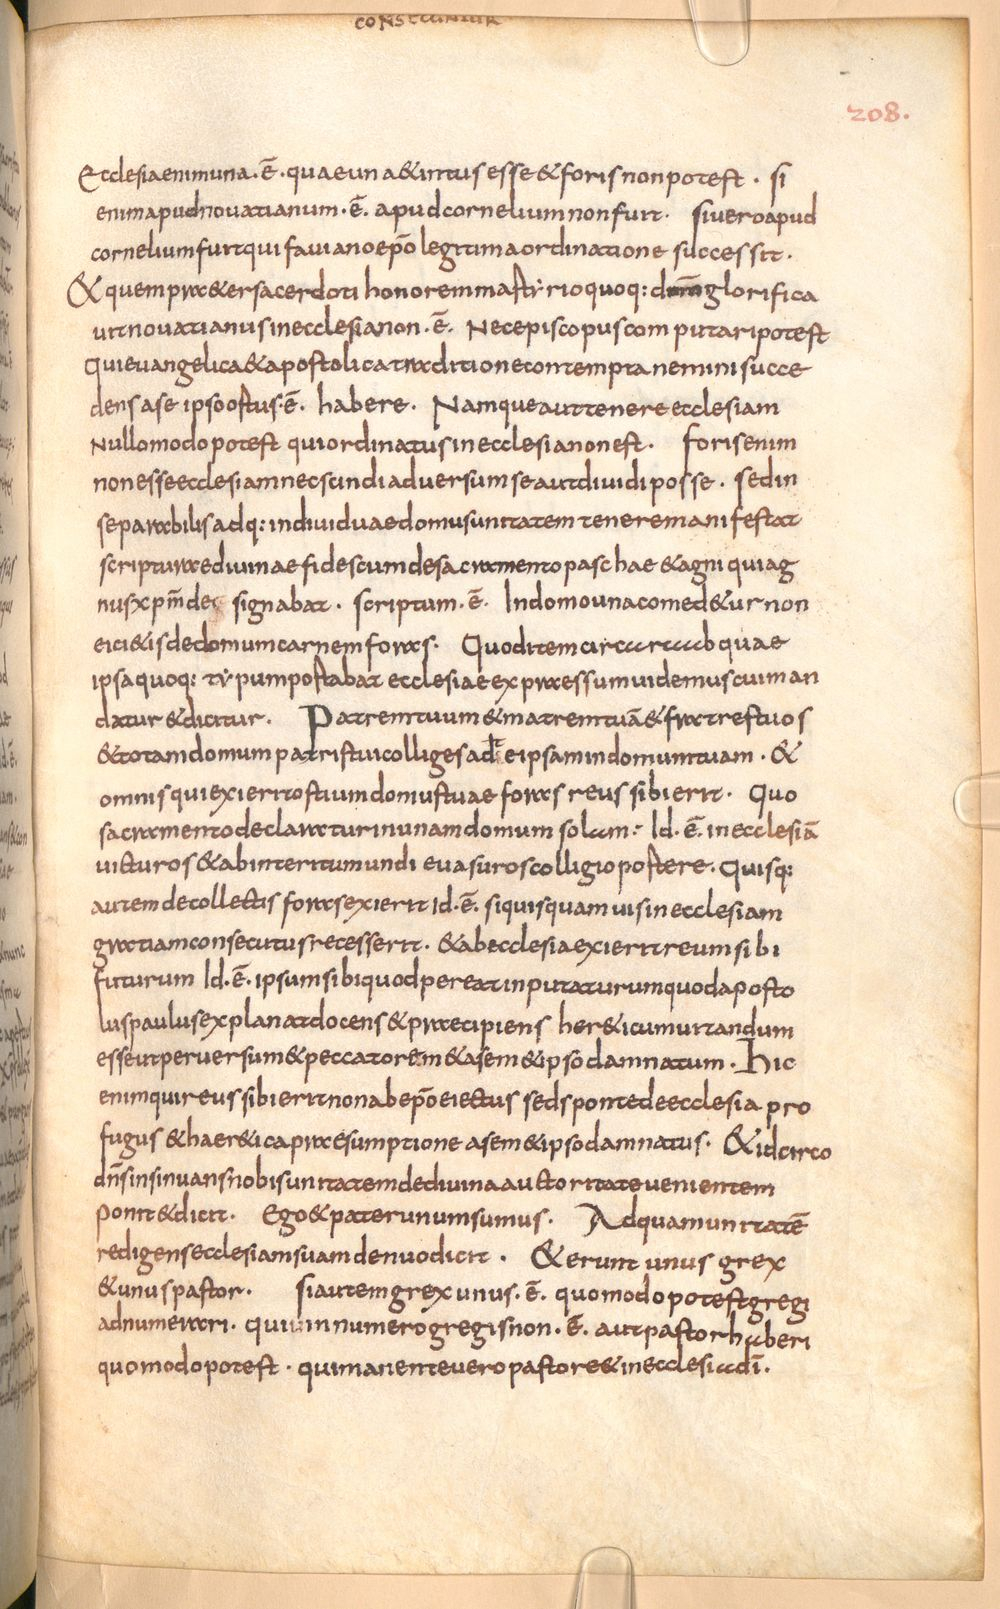 CONSECUNTUR
208.
Ecclesia enim una. ē. quae una & intus esse & foris non potest. si
enim apud novatianum. ē. apud cornelium non fuit. si vero apud
cornelium fuit qui faviano epō legitima ordinatione successit.
& quem prae&er sacerdoti honorem martyrio quoq: dns glorifica
uit novatianus in ecclesia non. ē. Nec episcopus computari potest
Qui evangelica & apostolica traditione contempta nemini succe
dens a se ipso ostus. ē. habere. Namque aut tenere ecclesiam
Nullo modo potest qui ordinatus in ecclesia non est. foris enim
non esse ecclesiam nec scindi adversum se aut dividi posse. sed in
separabilis adq: individuae domus unitatem tenere manifestat
scripturae diuinae fides cum de sacramento paschae & agni qui ag
nus xpm de signabat. scriptum. ē. In domo una comed&ur non
eici&is de domum carnem foras. Quod item circa raab quae
ipsa quoq: typum postabat ecclesiae expraessum uidemus cui man
datur & dicitur. Patrem tuum & matrem tuā & fratres tuos
& totam domum patris tui colliges ad te ipsam in domum tuam. &
omnis qui exierit ostium domus tuae foras reus sibi erit. Quo
sacramento declaratur in unam domum solam: Id. ē. in ecclesiā
uicturos & ab interitu mundi evasuros colligi opostere. Quisq:
autem de collectis foras exierit Id. ē. si quisquam uis in ecclesiam
gratiam consecutus recesserit. & ab ecclesia exierit reum sibi
futurum Id. ē. ipsum sibi quod pereat inputaturum quod aposto
lus paulus explanat docens & praecipiens her&icum uitandum
esse ut perversum & peccatorem & a sem&ipso damnatum. Hic
enim qui reus sibi erit non ab epō eiectus sed sponte de ecclesia pro
fugus & haer&ica praesumptione a sem&ipso damnatus. & idcirco
dn̄s insinuans nobis unitatem de divina auctoritate venientem
ponit & dicit. Ego & pater unum sumus. Ad quam unitatē
redigens ecclesiam suam denuo dicit. & erunt unus grex
& unus pastor. si autem grex unus. ē. quomodo potest gregi
adnumerari. qui in numero gregis non. ē. aut pastor haberi
quomodo potest. qui manente vero pastore & in ecclesia dī.